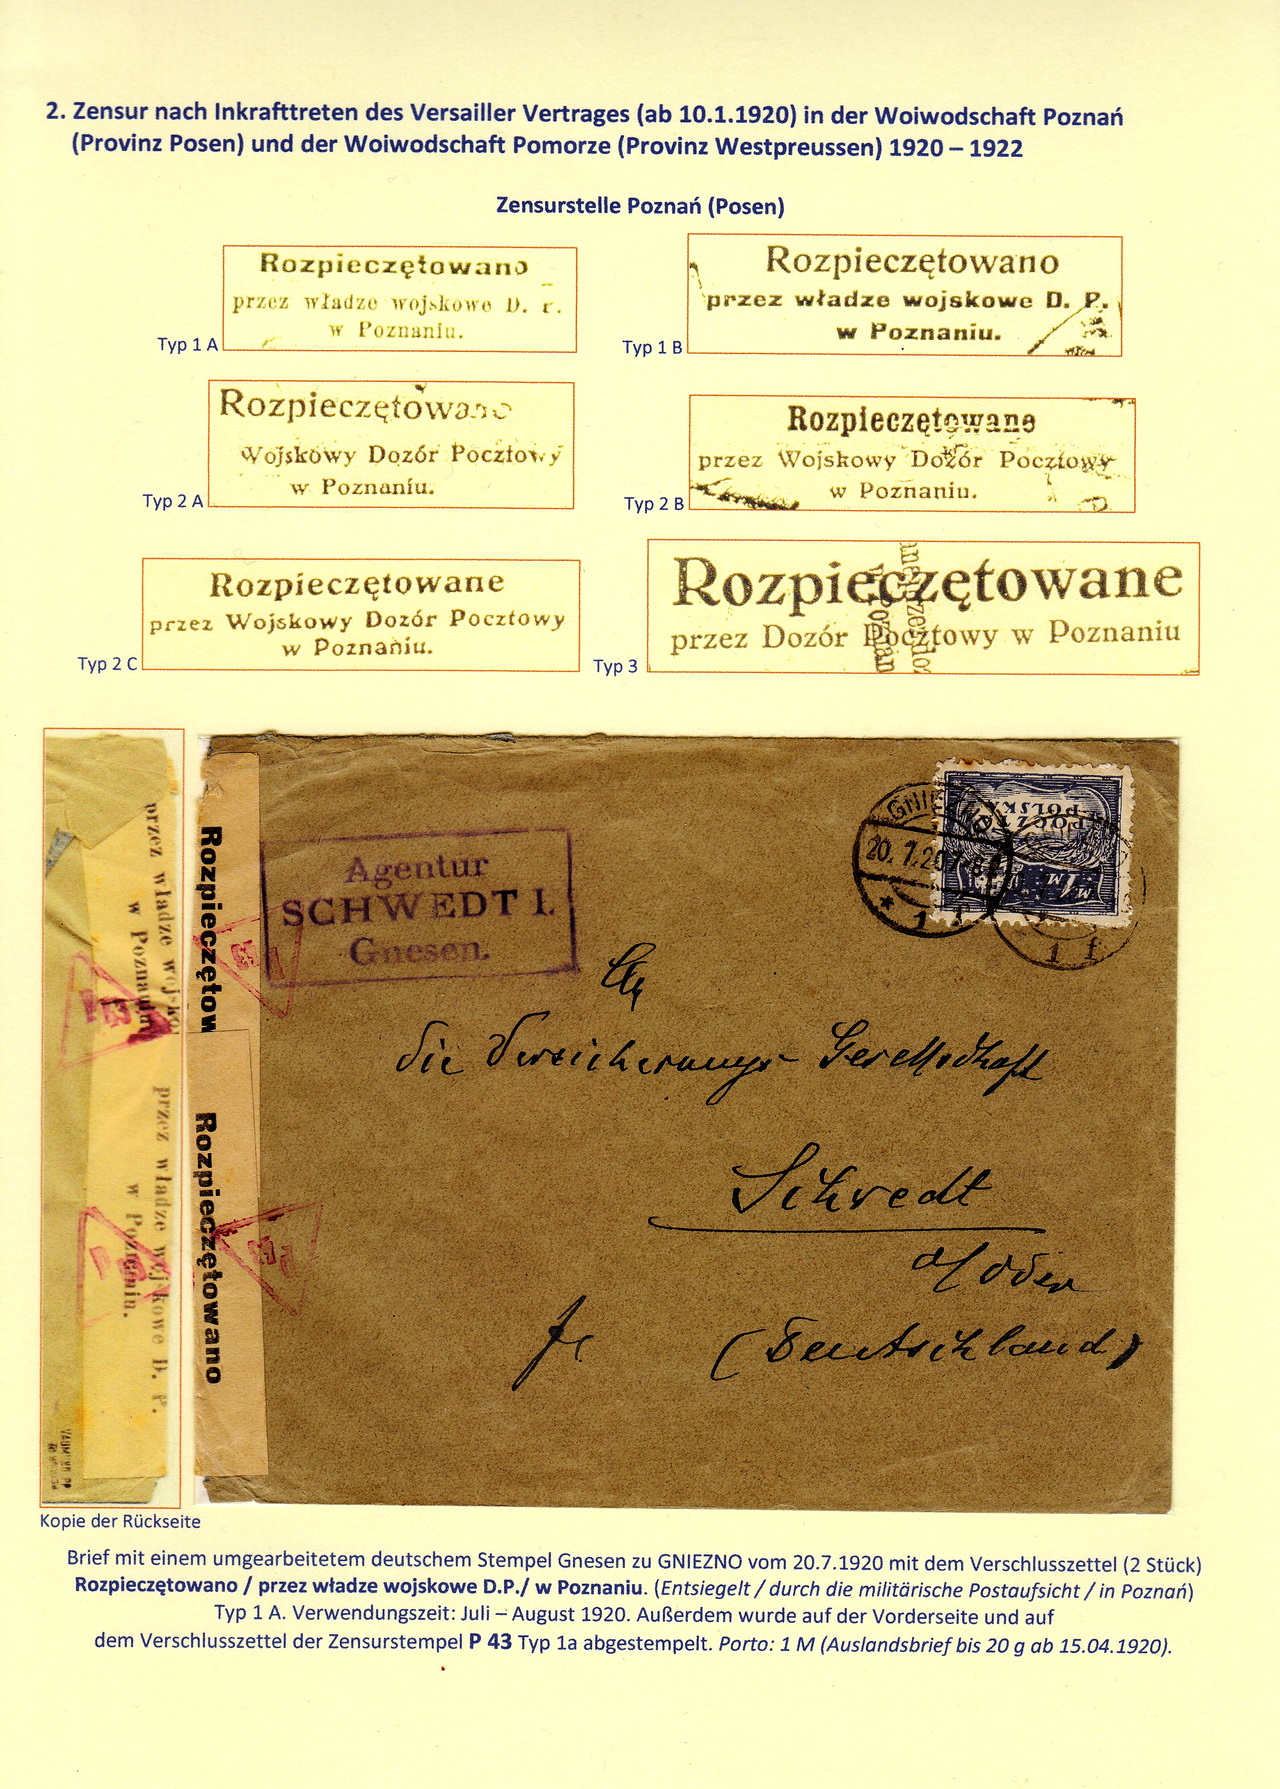 2. Zensur nach Inkrafttreten des Versailler Vertrages (ab 10.1.1920) in der Woiwodschaft Poznań
(Provinz Posen) und der Woiwodschaft Pomorze (Provinz Westpreussen) 1920 – 1922
Zensurstelle Poznań (Posen)
Rozpieczętowano
przez władze wojskowe D. P.
w Poznaniu.
Typ 1 A
Rozpieczętowano
przez władze wojskowe D. P.
w Poznaniu.
Typ 1 B
Rozpieczętowano
Wojskowy Dozór Pocztowy
w Poznaniu.
Typ 2 A
Rozpieczętowane
przez Wojskowy Dozór Pocztowy
w Poznaniu.
Typ 2 B
Rozpieczętowane
przez Wojskowy Dozór Pocztowy
w Poznaniu.
Typ 2 C
Rozpieczętowane
przez Dozór Pocztowy w Poznaniu
Typ 3
przez władze wojsko
w Poznaniu
przez władze wojskowe D. P.
w Poznaniu.
Rozpieczętow
Rozpieczętowano
Agentur
SCHWEDT I.
Gnesen.
POCZTA
POLSKA
1M
20. 7.20
* 1 f
1 f
An
die Versicherungs-Gesellschaft
Schwedt
a/Oder
(Deutschland)
Kopie der Rückseite
Brief mit einem umgearbeitetem deutschem Stempel Gnesen zu GNIEZNO vom 20.7.1920 mit dem Verschlusszettel (2 Stück)
Rozpieczętowano / przez władze wojskowe D.P./ w Poznaniu. (Entsiegelt / durch die militärische Postaufsicht / in Poznań)
Typ 1 A. Verwendungszeit: Juli – August 1920. Außerdem wurde auf der Vorderseite und auf
dem Verschlusszettel der Zensurstempel P 43 Typ 1a abgestempelt. Porto: 1 M (Auslandsbrief bis 20 g ab 15.04.1920).